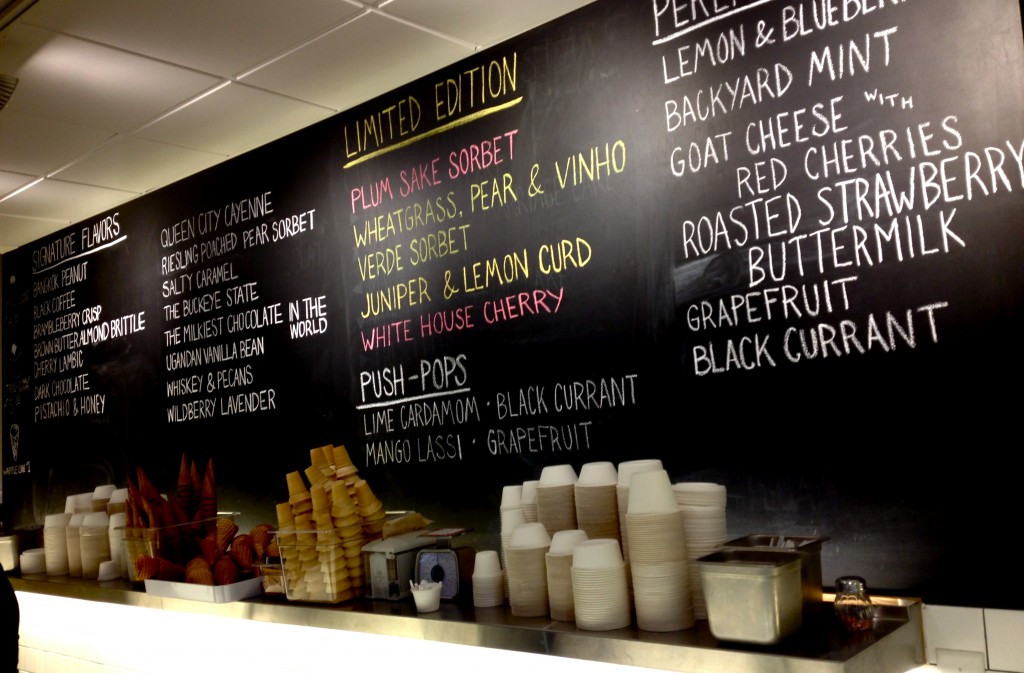 SIGNATURE FLAVORS
BANGKOK PEANUT
BLACK COFFEE
BRAMBLEBERRY CRISP
BROWN BUTTER ALMOND BRITTLE
CHERRY LAMBIC
DARK CHOCOLATE
PISTACHIO & HONEY
QUEEN CITY CAYENNE
RIESLING POACHED PEAR SORBET
SALTY CARAMEL
THE BUCKEYE STATE
THE MILKIEST CHOCOLATE IN THE
WORLD
UGANDAN VANILLA BEAN
WHISKEY & PECANS
WILDBERRY LAVENDER
LIMITED EDITION
PLUM SAKE SORBET
WHEATGRASS, PEAR & VINHO
VERDE SORBET
JUNIPER & LEMON CURD
WHITE HOUSE CHERRY
PUSH-POPS
LIME CARDAMOM · BLACK CURRANT
MANGO LASSI · GRAPEFRUIT
LEMON &
BACKYARD MINT
GOAT CHEESE WITH
RED CHERRIES
ROASTED STRAWBERRY
BUTTERMILK
GRAPEFRUIT
BLACK CURRANT